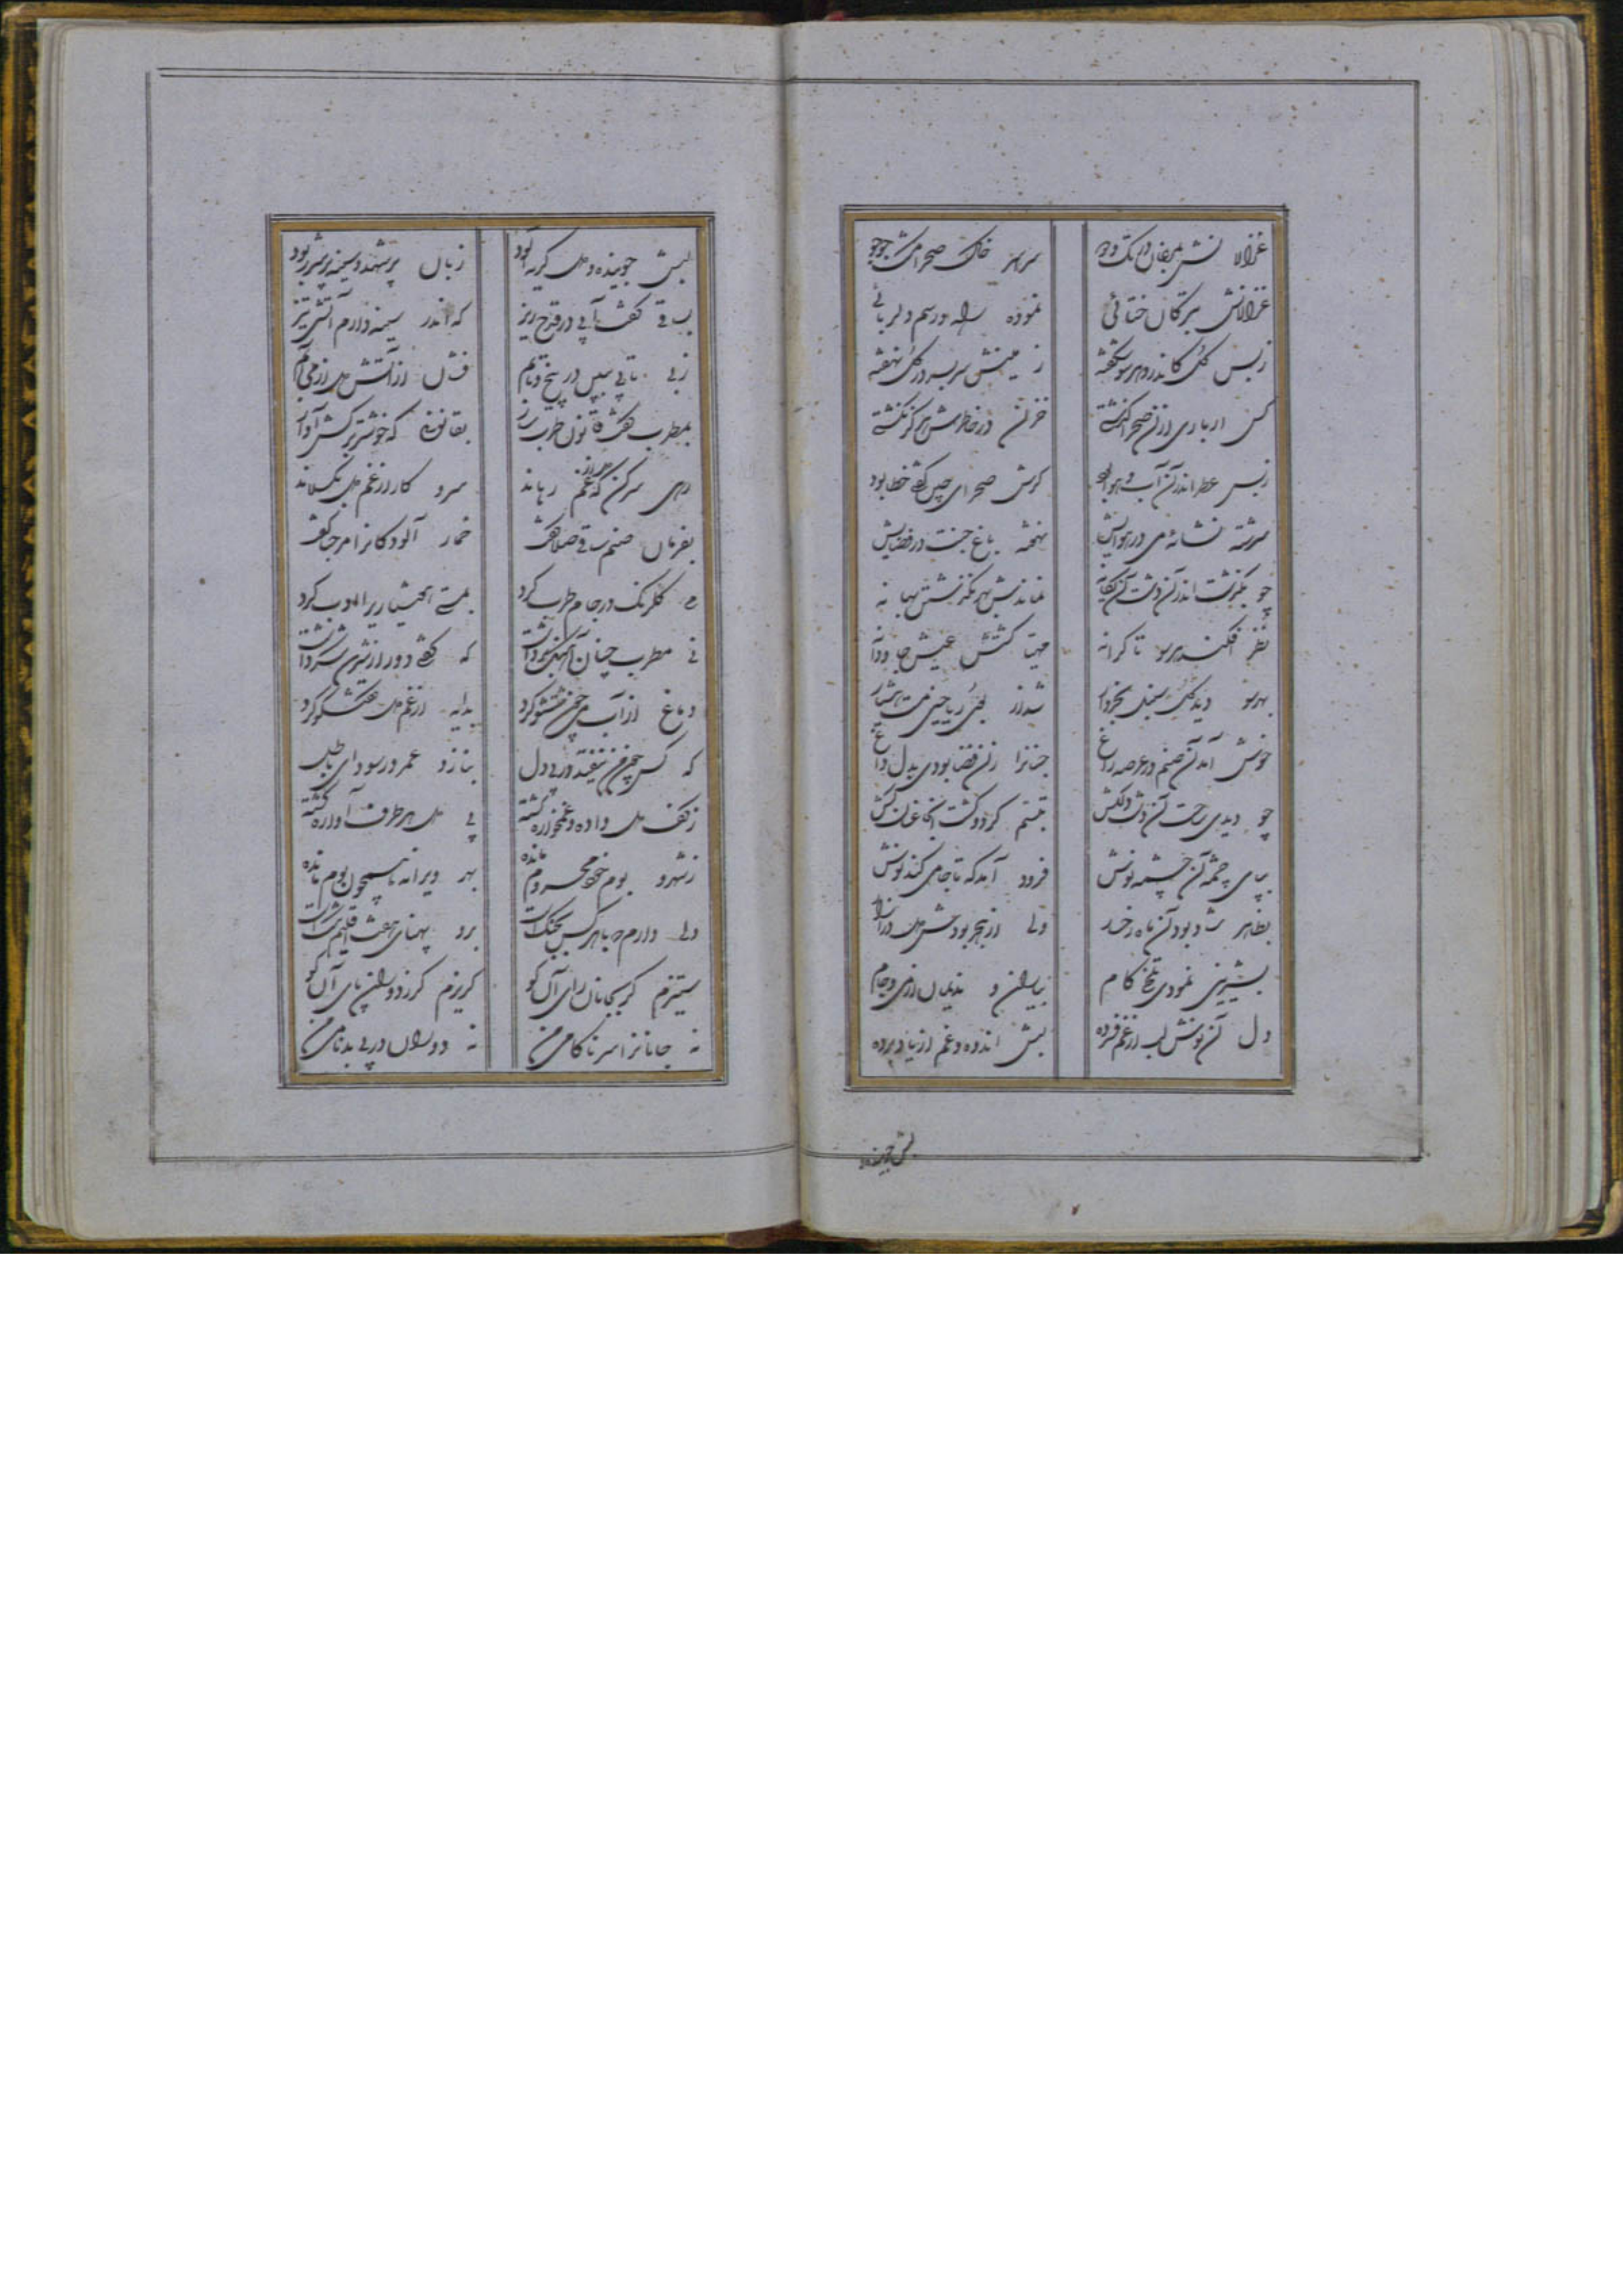 غزالانش بمیقان در تک و دو سراسر خاک صحرا مشک جوجو
غزالانش بترکان ختائی نموده راه و رسم دلربائی
ز بس گل کاندرو هر سو شکفته زمینش سر بسر در گل نهفته
کس ار باری از آن صحرا گذشته خزان در خاطرش هرگز نگشته
ز بس عطر اندر آن آب و هوا بود گرش صحرای چین گفتی خطا بود
سرشته نشائه می در هوایش نهفته باغ جنت در فضایش
چو بگذشت اندر آن دشت آن یگانه نماندش بهر نگذشتن بهانه
نظر افکند هر سو تا کرانه مهیا گشتش عیش جاودانه
بهر سو دید گل سنبل بخروار شد از بوی ریاحین مست هشیار
خوش آمد آن صنم در عرصه راغ جنانرا زان فضا بودی بدل داغ
چو دید ساحت آن دشت دلکش تبسم کرد و گشت آنجا عنان کش
بپای چشمه آن چشمه نوش فرود آمد که تا جامی کند نوش
بظاهر شاد بود آن ماه رخسار ولی از هجر بودش دل در آزار
بشیرینی نمودی تلخ کام بیاران و ندیمان از می و جام
دل آن نوش لب از غم فسرده لبش اندوه و غم از یاد برده
لبش جوینده
لبش جوینده و دل گریه آلود زبان پر شهد و سینه پر شرر بود
بساقی گفت آبی در قدح ریز که اندر سینه دارم آتش تیز
ز بی تابی ببین در پیچ و تابم فشان از آتش دل از می آبم
بمطرب گفت قانون طرب ساز بقانونی که خوشتر برکش آواز
رهی سر کن که از غم رهاند سرودی کز غم دل بگسلاند
بفرمان صنم ساقی صلا گفت خمار آلودگانرا مرحبا گفت
می گلرنگ در جام طرب کرد بمستی هشیاریرا ادب کرد
نی مطرب چنان آهنگ برداشت که گفتی دور از شیرین شکر داشت
دماغ از آب می چون شستشو کرد بدایه از غم دل گفتگو کرد
که کس چون من نیفتد در پی دل ببازد عمر در سودای باطل
ز کف دل داده و غمخواره گشته پی دل هر طرف آواره گشته
ز شهر و بوم خود محروم مانده بهر ویرانه همچون بوم مانده
دلی دارم که با هر کس بجنگ است برو پهنای هفت اقلیم تنگ است
ستیزم گر بجانان رای آن کو گریزم گر ز دوران پای آن کو
نه جانانرا سر ناکامی من نه دوران در پی بدنامی من